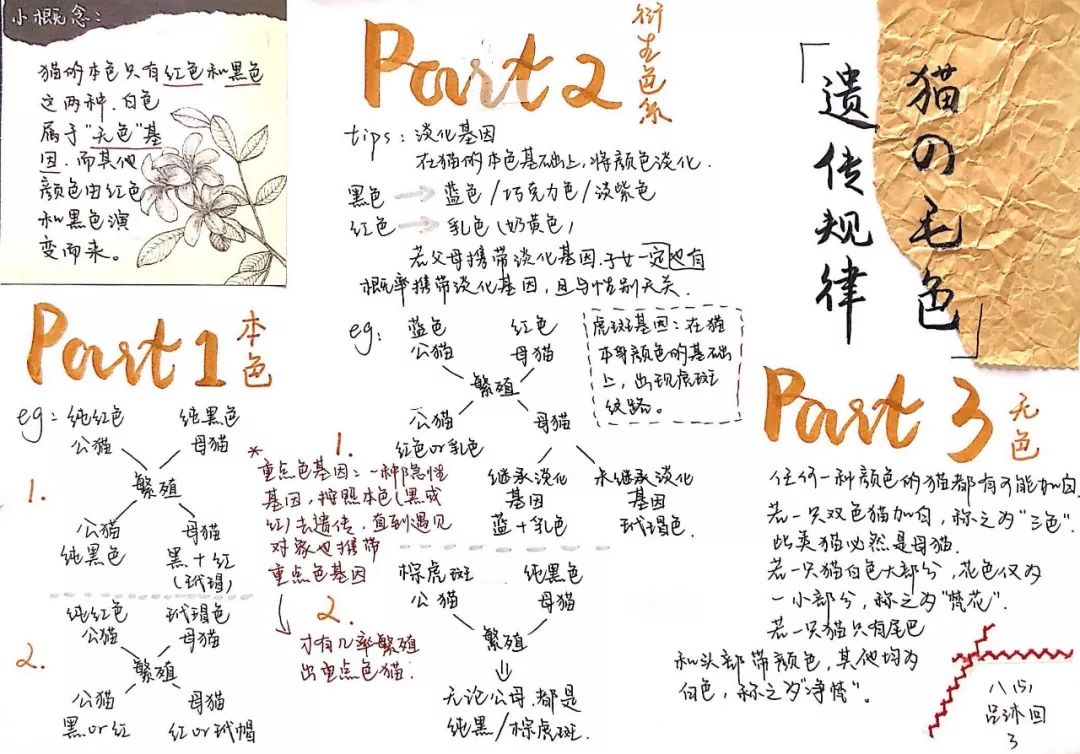 小概念：
猫的本色只有红色和黑色
这两种.白色
属于"无色"基
因.而其他
颜色由红色
和黑色演
变而来。
「猫の毛色
遗传规律」
Part 1 本色
eg: 纯红色 纯黑色
公猫 母猫
1. 繁殖
公猫 母猫
纯黑色 黑+红
(玳瑁)
纯红色 玳瑁色
公猫 母猫
2. 繁殖
公猫 母猫
黑or红 红or玳帽
*
重点色基因：一种隐性
基因，按照本色(黑或
红)去遗传，直到遇见
对象也携带
重点色基因
才有几率繁殖
出重点色猫.
Part 2 衍生色系
tips: 淡化基因
在猫的本色基础上，将颜色淡化.
黑色 → 蓝色/巧克力色/淡紫色
红色 → 乳色(奶黄色)
若父母携带淡化基因.子女一定也有
概率携带淡化基因，且与性别无关.
eg: 蓝色 红色
公猫 母猫
繁殖
公猫 母猫
1. 红色or乳色
继承淡化 未继承淡化
基因 基因
蓝+乳色 玳瑁色.
虎斑基因：在猫
本身颜色的基础
上，出现虎斑
纹路。
棕虎斑 纯黑色
公猫 母猫
2. 繁殖
无论公母.都是
纯黑/棕虎斑.
Part 3 无色
任何一种颜色的猫都有可能加白.
若一只双色猫加白，称之为"三色".
此类猫必然是母猫.
若一只猫白色大部分，花色仅为
一小部分，称之为"梵花".
若一只猫只有尾巴
和头部带颜色，其他均为
白色，称之为"净梵".
八(5)
3